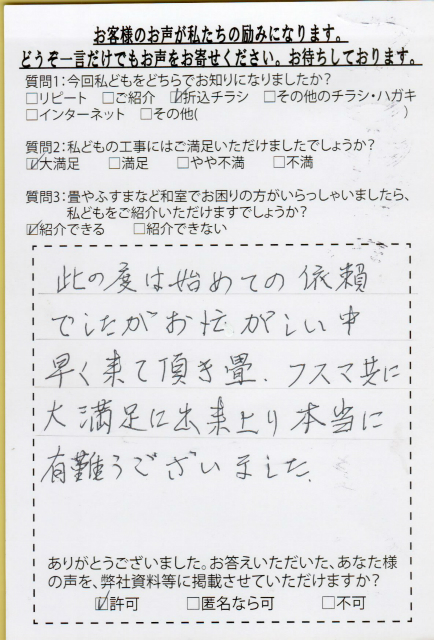 お客様のお声が私たちの励みになります。
どうぞ一言だけでもお声をお寄せください。お待ちしております。
質問1：今回私どもをどちらでお知りになりましたか？
□リピート □ご紹介 ☑折込チラシ □その他のチラシ・ハガキ
□インターネット □その他( )
質問2：私どもの工事にはご満足いただけましたでしょうか？
☑大満足 □満足 □やや不満 □不満
質問3：畳やふすまなど和室でお困りの方がいらっしゃいましたら、
私どもをご紹介いただけますでしょうか？
☑紹介できる □紹介できない
此の度は始めての依頼
でしたがお忙がしい中
早く来て頂き畳、フスマ共に
大満足に出来上り本当に
有難うございました。
ありがとうございました。お答えいただいた、あなた様
の声を、弊社資料等に掲載させていただけますか？
☑許可 □匿名なら可 □不可